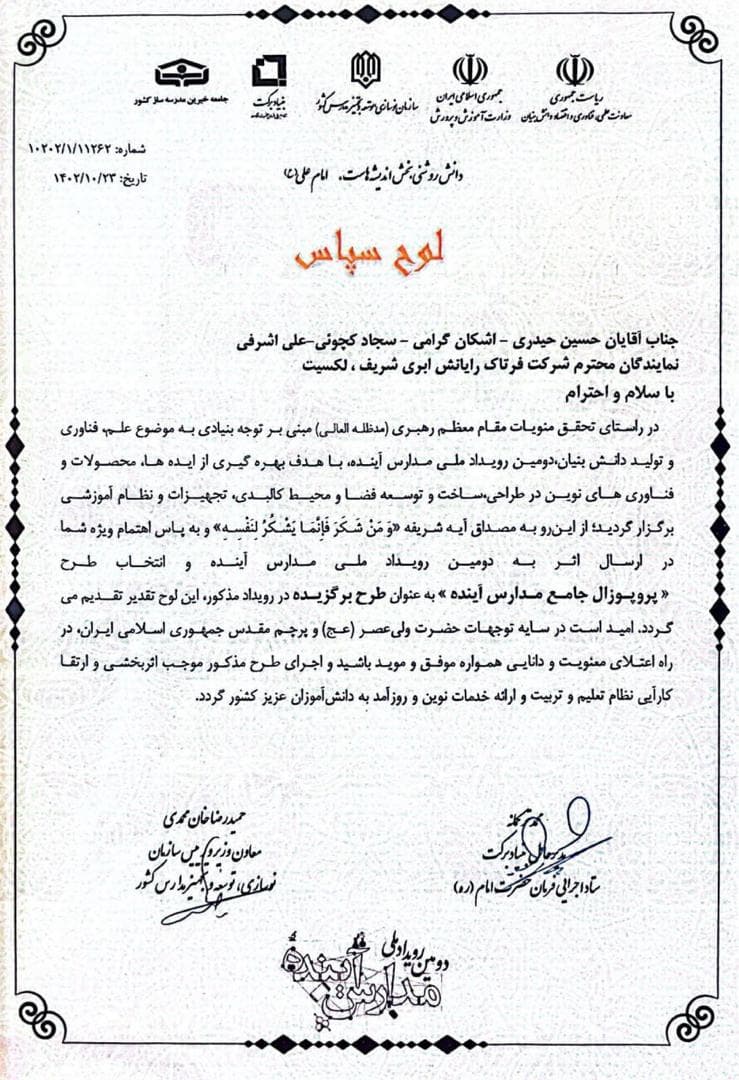 ریاست جمهوری
معاونت علمی، فناوری و اقتصاد دانش بنیان
جمهوری اسلامی ایران
وزارت آموزش و پرورش
سازمان نوسازی، توسعه و تجهیز مدارس کشور
بنیاد برکت
جامعه خیرین مدرسه ساز کشور
شماره: ۱۰۲۰۲/۱/۱۱۲۶۲
تاریخ: ۱۴۰۲/۱۰/۲۳
دانش روشنی بخش اندیشه هاست. امام علی (ع)
لوح سپاس
جناب آقایان حسین حیدری - اشکان گرامی - سجاد کچوئی-علی اشرفی
نمایندگان محترم شرکت فرتاک رایانش ابری شریف ، لکسیت
با سلام و احترام
در راستای تحقق منویات مقام معظم رهبری (مدظله العالی) مبنی بر توجه بنیادی به موضوع علم، فناوری
و تولید دانش بنیان،دومین رویداد ملی مدارس آینده، با هدف بهره گیری از ایده ها، محصولات و
فناوری های نوین در طراحی،ساخت و توسعه فضا و محیط کالبدی، تجهیزات و نظام آموزشی
برگزار گردید؛ از این‌رو به مصداق آیه شریفه «وَ مَنْ شَکَرَ فَإِنَّمَا یَشْکُرُ لِنَفْسِهِ» و به پاس اهتمام ویژه شما
در ارسال اثر به دومین رویداد ملی مدارس آینده و انتخاب طرح
« پروپوزال جامع مدارس آینده » به عنوان طرح برگزیده در رویداد مذکور، این لوح تقدیر تقدیم می
گردد. امید است در سایه توجهات حضرت ولی‌عصر (عج) و پرچم مقدس جمهوری اسلامی ایران، در
راه اعتلای معنویت و دانایی همواره موفق و موید باشید و اجرای طرح مذکور موجب اثربخشی و ارتقا
کارآیی نظام تعلیم و تربیت و ارائه خدمات نوین و روزآمد به دانش‌آموزان عزیز کشور گردد.
محمد
مدیرعامل بنیاد برکت
ستاد اجرایی فرمان حضرت امام (ره)
حمیدرضا خان محمدی
معاون وزیر و رییس سازمان
نوسازی، توسعه و تجهیز مدارس کشور
دومین رویداد ملی
مدارس آینده